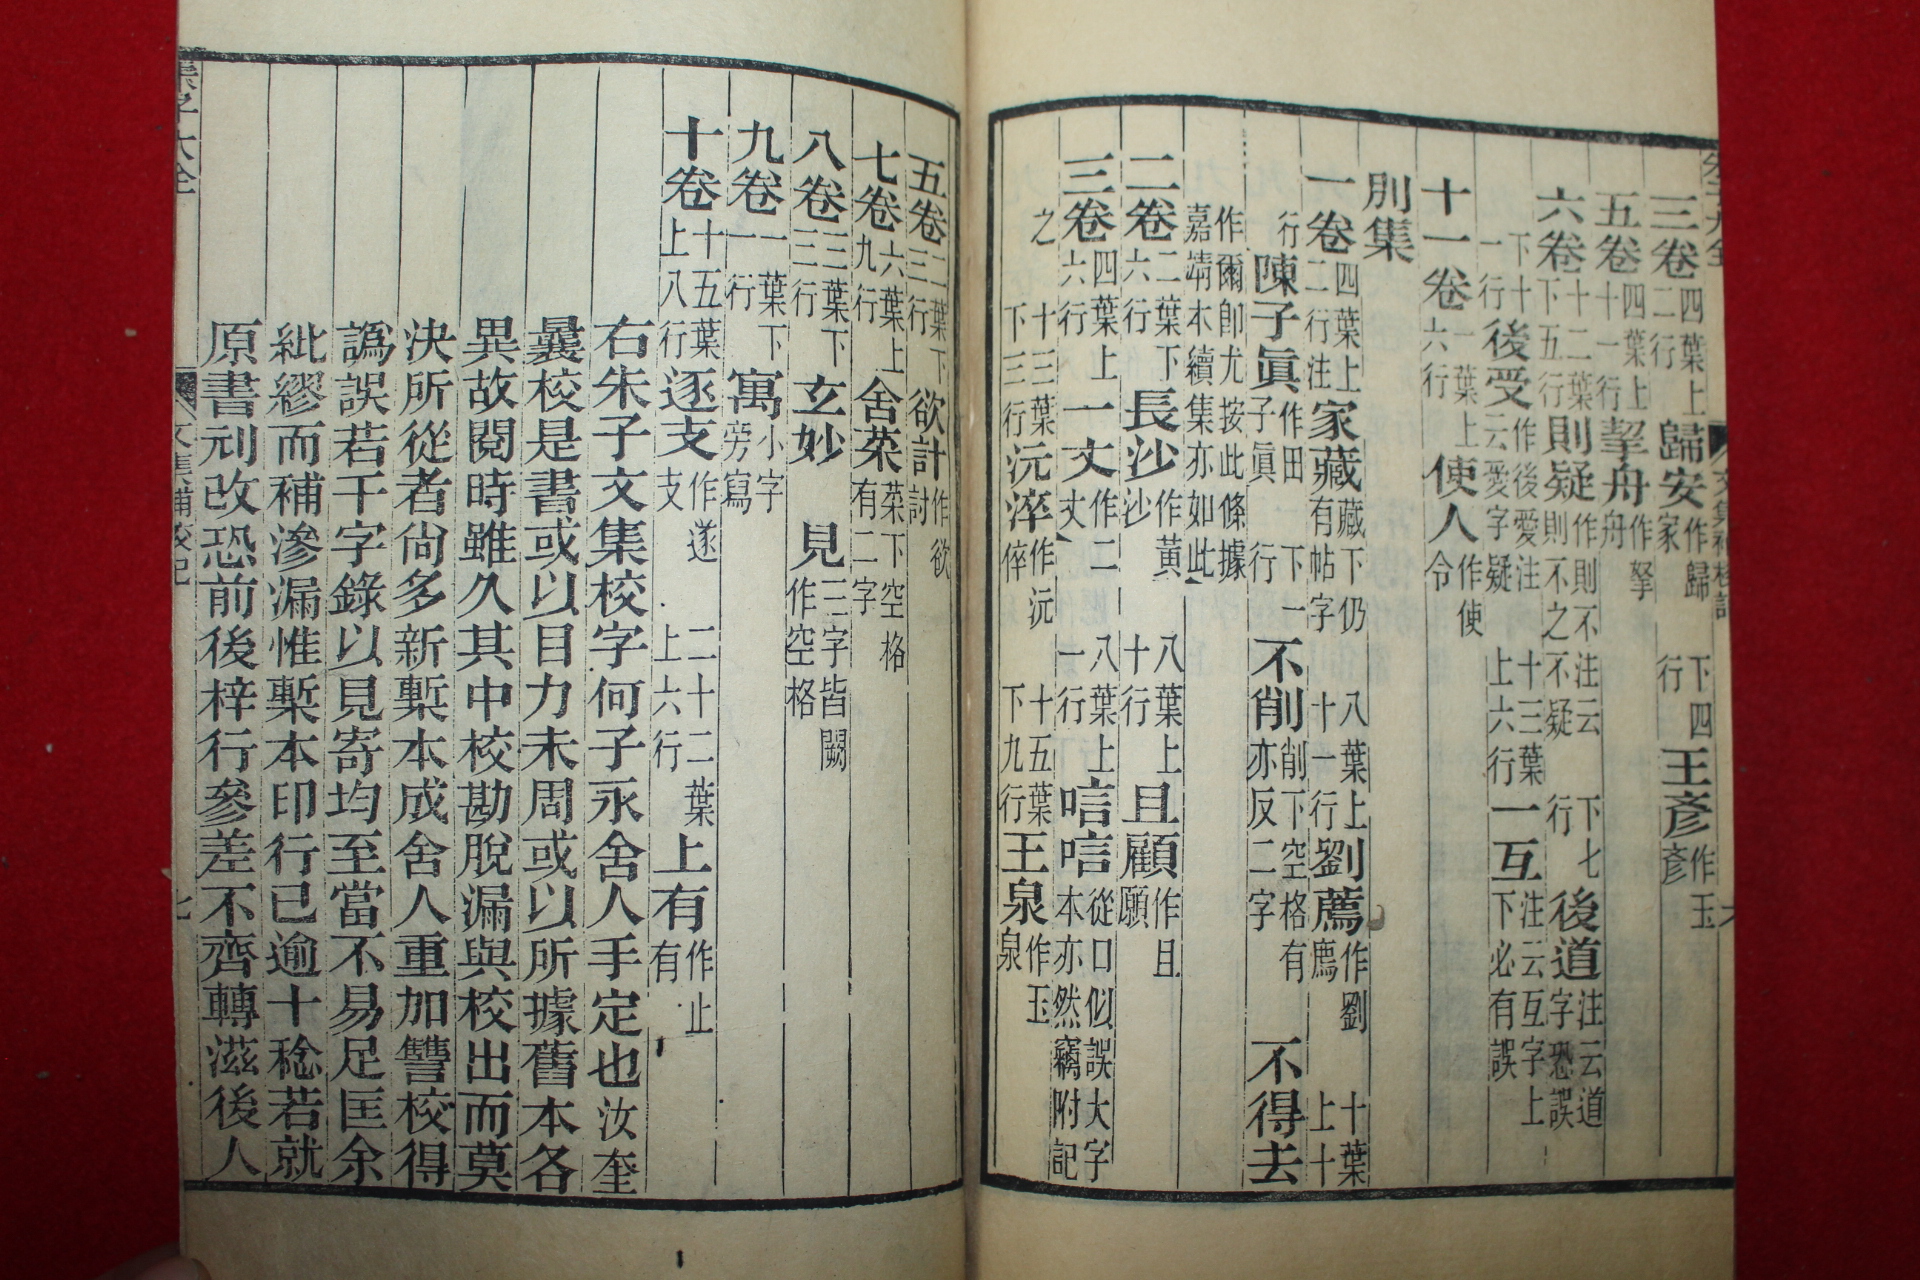 三卷四葉上二行歸安作歸家 下四行王彥作玉彥
五卷四葉上十一行挐舟作拏舟
六卷十二葉下五行則疑作則不注云則不之不疑 下七行後道注云道字恐誤
下十一行後受作後愛注云愛字疑 十三葉上六行一互注云互字上下必有誤
十一卷一葉上六行使人作使令
別集
一卷四葉上二行注家藏藏下仍有帖字 八葉上十一行劉薦作劉廌 十葉上十
行陳子眞作田子眞 下一行不削削下空格有亦反二字 不得去
作爾卽尤按此條據嘉靖本續集亦如此
二卷二葉下六行長沙作黃沙 八葉上十行且顧作且願
三卷四葉上六行一丈作二丈 八葉上一行唁唁從口似誤大字本亦然竊附記
之 十三葉下三行沅滓作沅倅 十五葉下九行王泉作玉泉
五卷三葉下三行欲計作欲討
七卷六葉上九行舍菜菜下空格有二字
八卷三葉下三行玄妙 見三字皆闕作空格
九卷一葉下一行寓小字旁寫
十卷十五葉上八行逐支作遂支 二十二葉上六行上有作止有
右朱子文集校字何子永舍人手定也汝奎
曩校是書或以目力未周或以所據舊本各
異故閱時雖久其中校勘脫漏與校出而莫
決所從者尙多新槧本成舍人重加讐校得
譌誤若干字錄以見寄均至當不易足匡余
紕繆而補滲漏惟槧本印行已逾十稔若就
原書刓改恐前後梓行參差不齊轉滋後人